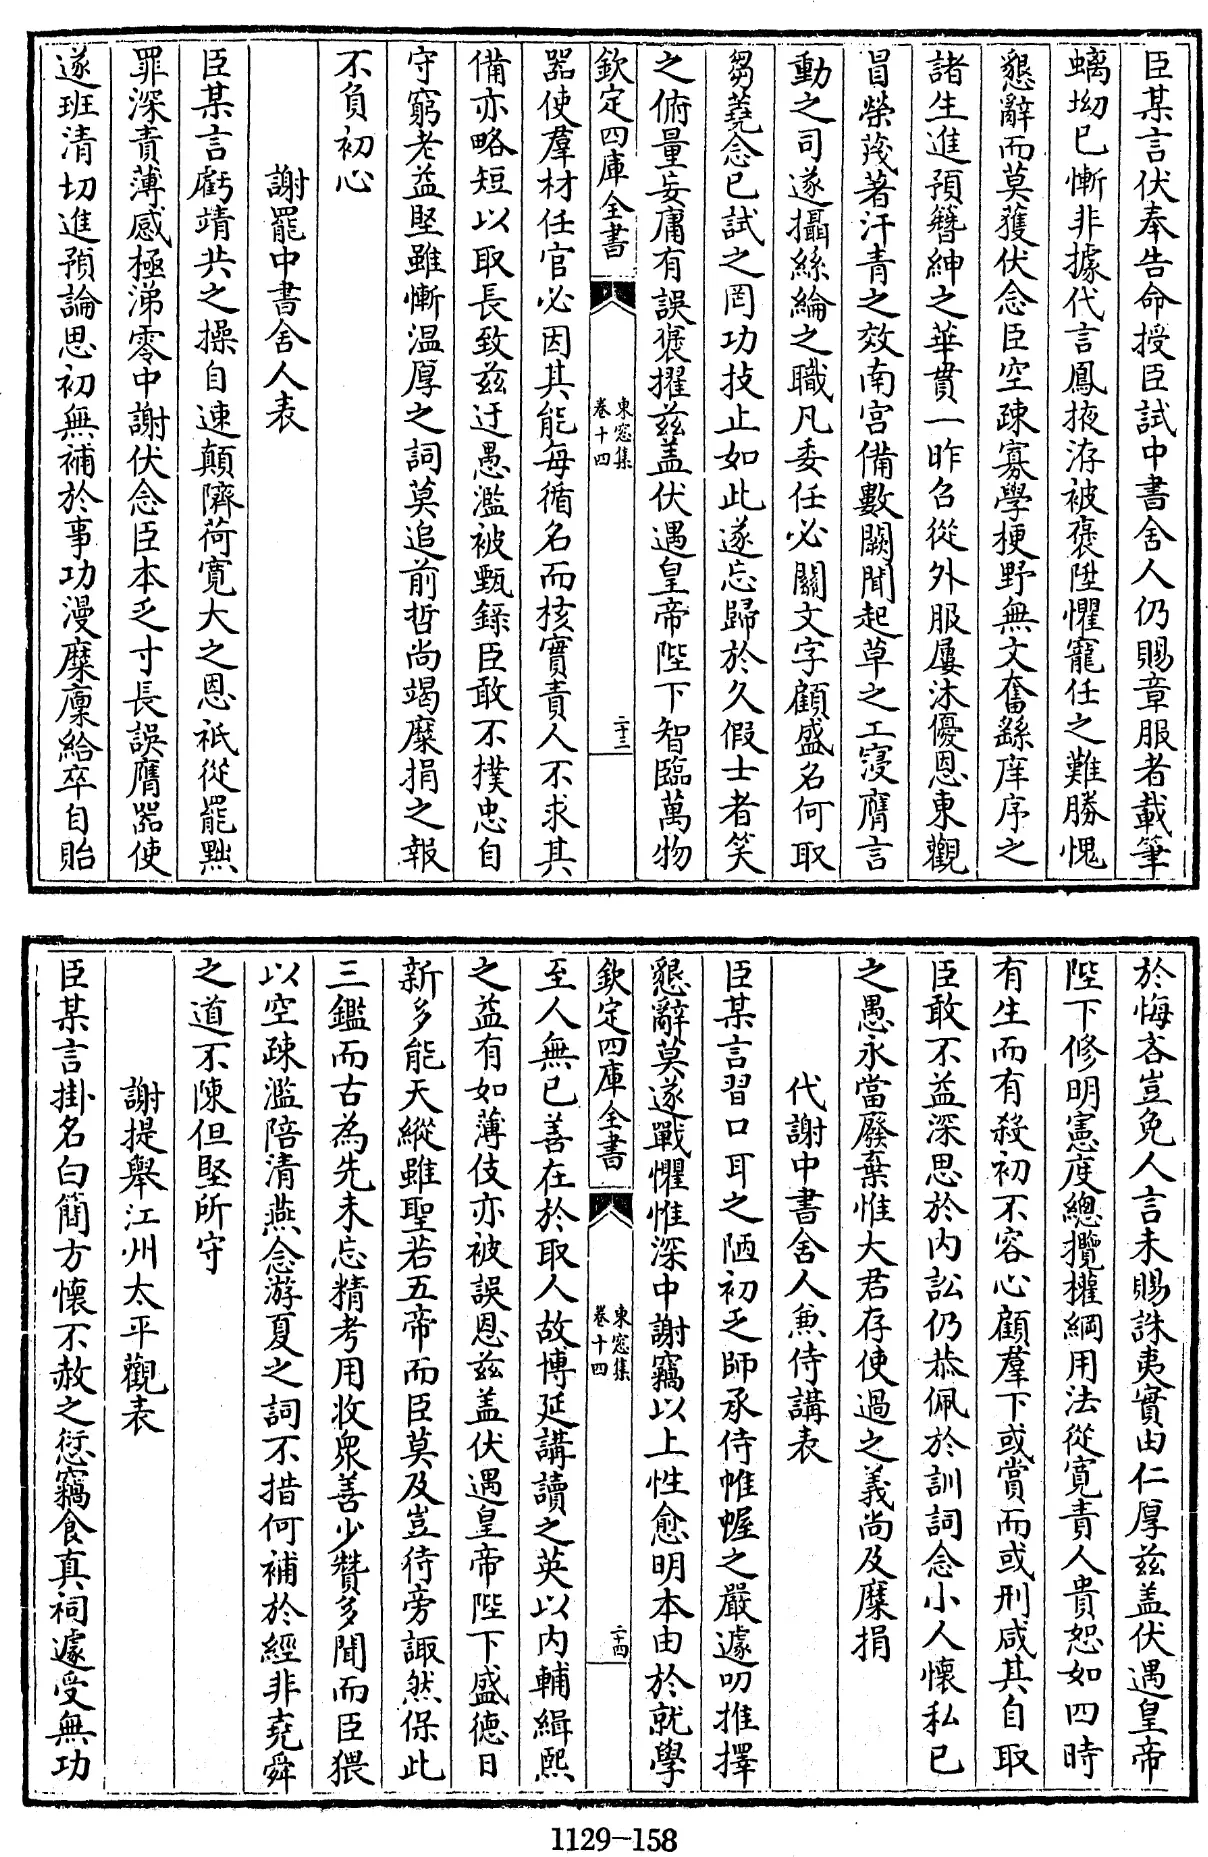 臣某言伏奉告命授臣試中書舍人仍賜章服者載筆
螭坳已慚非據代言鳳掖洊被褒陞懼寵任之難勝愧
懇辭而莫獲伏念臣空疎寡學梗野無文奮繇庠序之
諸生進預簪紳之華貫一昨召從外服屢沐優恩東觀
冒榮蔑著汗青之效南宮備數闕聞起草之工寖膺言
動之司遂攝絲綸之職凡委任必關文字顧盛名何取
芻蕘念已試之罔功技止如此遂忘歸於久假士者笑
之俯量妄庸有誤褒擢兹盖伏遇皇帝陛下智臨萬物
欽定四庫全書
東窓集
卷十四
二十三
器使羣材任官必因其能每循名而核實責人不求其
備亦略短以取長致兹迂愚濫被甄録臣敢不撲忠自
守窮老益堅雖慚温厚之詞莫追前哲尚竭糜捐之報
不負初心
謝罷中書舍人表
臣某言虧靖共之操自速顛隮荷寛大之恩祇從罷黜
罪深責薄感極涕零中謝伏念臣本乏寸長誤膺器使
遂班清切進預論思初無補於事功漫糜廪給卒自貽
於悔吝豈免人言未賜誅夷實由仁厚兹盖伏遇皇帝
陛下修明憲度總攬權綱用法從寛責人貴恕如四時
有生而有殺初不容心顧羣下或賞而或刑咸其自取
臣敢不益深思於内訟仍恭佩於訓詞念小人懷私已
之愚永當廢棄惟大君存使過之義尚及糜捐
代謝中書舍人兼侍講表
臣某言習口耳之陋初乏師承侍帷幄之嚴遽叨推擇
懇辭莫遂戰懼惟深中謝竊以上性愈明本由於就學
欽定四庫全書
東窓集
卷十四
二十四
至人無已善在於取人故博延講讀之英以内輔緝熙
之益有如薄伎亦被誤恩兹盖伏遇皇帝陛下盛德日
新多能天縱雖聖若五帝而臣莫及豈待旁諏然保此
三鑑而古為先未忘精考用收衆善少贊多聞而臣猥
以空疎濫陪清燕念游夏之詞不措何補於經非堯舜
之道不陳但堅所守
謝提舉江州太平觀表
臣某言掛名白簡方懷不赦之愆竊食真祠遽受無功
1129-158